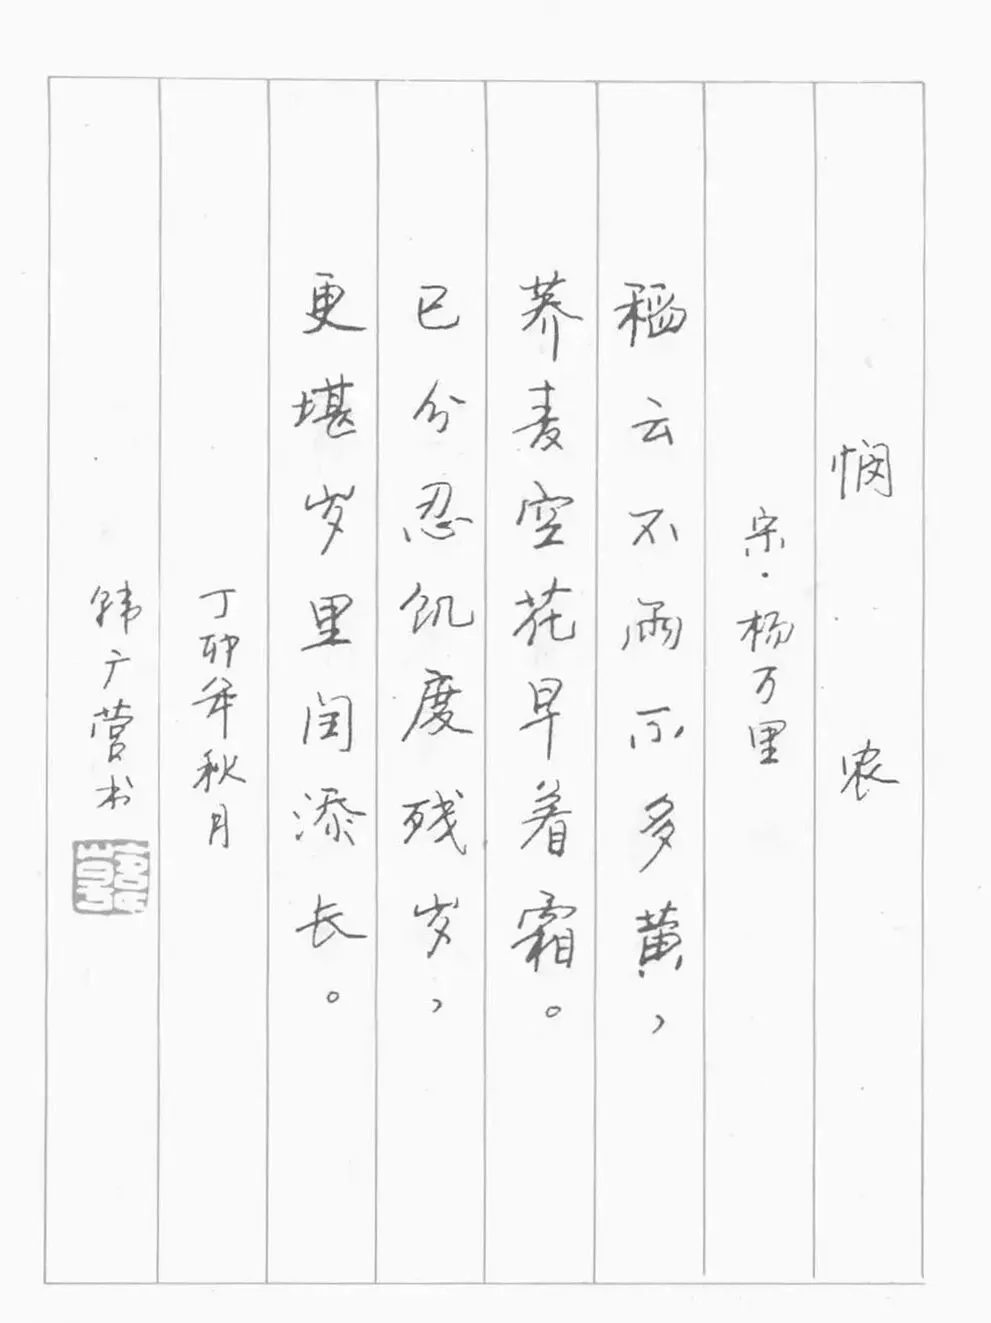 悯农
宋·杨万里
稻云不雨不多黄，
荞麦空花早着霜。
已分忍饥度残岁，
更堪岁里闰添长。
丁卯年秋月
韩广营书